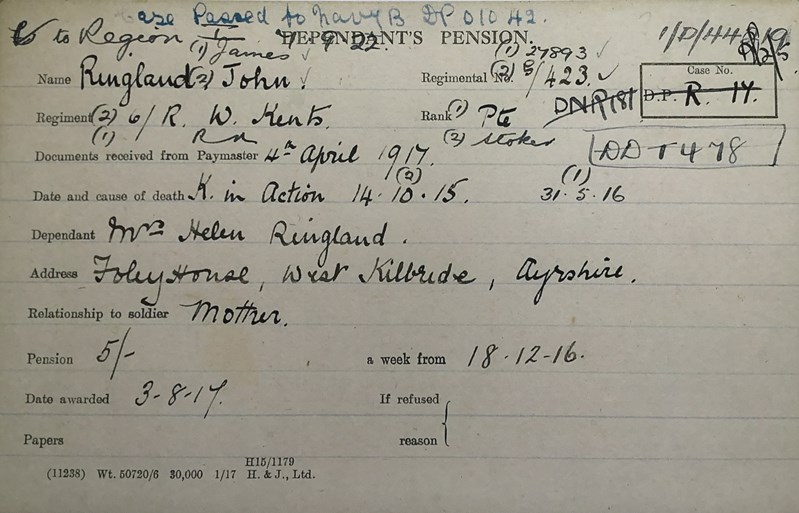 Case Passed to Navy B DP 01042.
to Region 7 9 22 DEPENDANT'S PENSION. 1/D/44819
(1) James (1) 27893
Name Ringland (2) John. Regimental No. (2) S/423. Case No.
DNR/81 D.P. R. 17.
Regiment (2) 6/ R. W. Kents. Rank (1) Pte
(1) RN (2) Stoker DD T 478
Documents received from Paymaster 4th April 1917.
Date and cause of death K. in Action (2) 14.10.15. (1) 31.5.16
Dependant Mrs Helen Ringland.
Address Foley House, West Kilbride, Ayrshire.
Relationship to soldier Mother.
Pension 5/- a week from 18.12.16.
Date awarded 3-8-17. If refused
Papers reason
H15/1179
(11238) Wt. 50720/6 30,000 1/17 H. & J., Ltd.